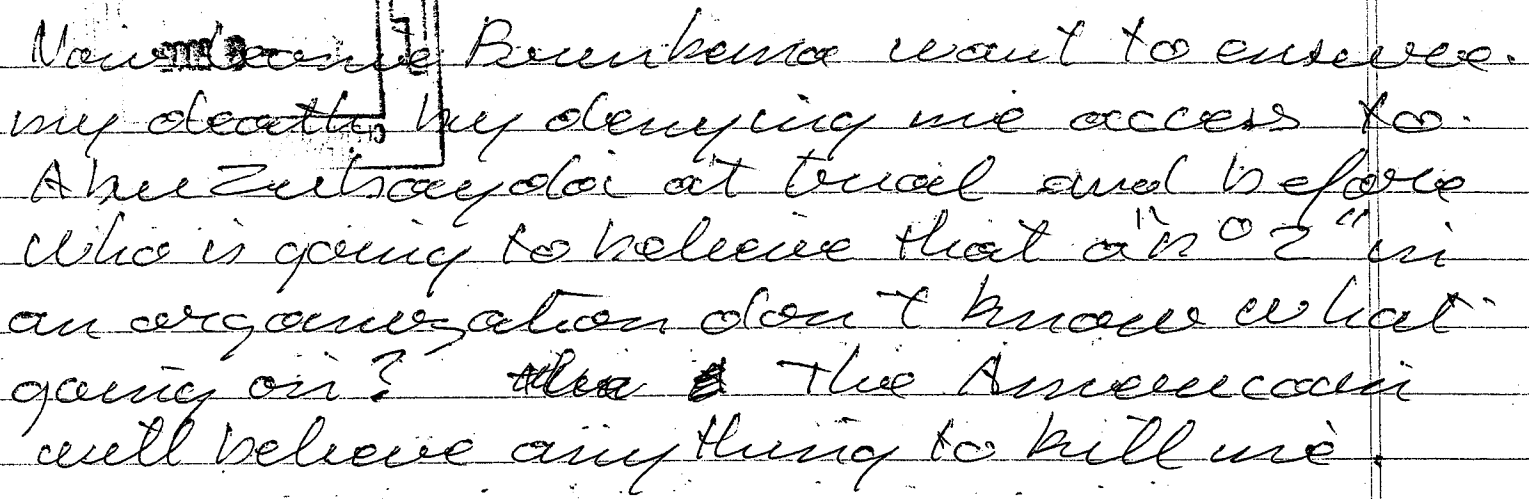 Now Leonie Brinkema want to ensure.
my death by denying me access to.
Abu Zubayda at trial and before
Who is going to believe that a "n° 2" in
an organization don't know what
going on? the The American
will believe anything to kill me.